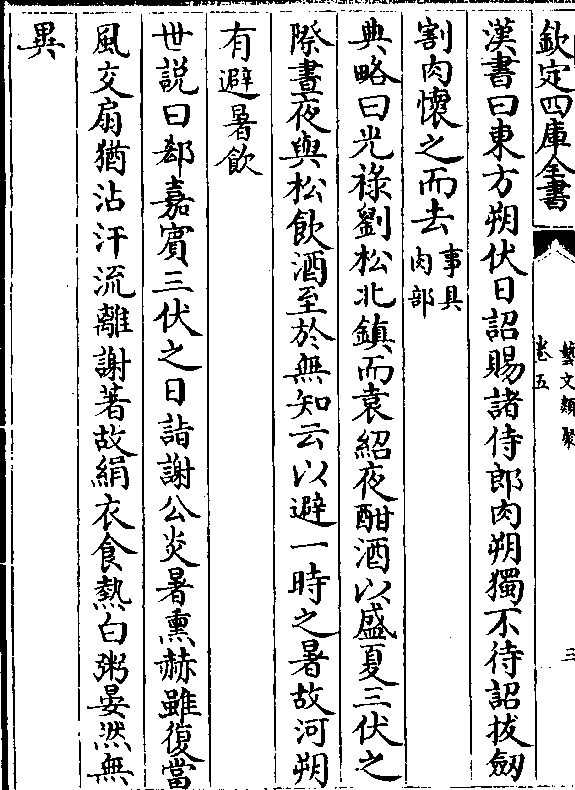 欽定四庫全書
藝文類聚
卷五
三
漢書曰東方朔伏日詔賜諸侍郎肉朔獨不待詔拔劒
割肉懷之而去
事具
肉部
典略曰光祿劉松北鎮而袁紹夜酣酒以盛夏三伏之
際晝夜與松飲酒至於無知云以避一時之暑故河朔
有避暑飲
世説曰郄嘉賓三伏之日詣謝公炎暑熏赫雖復當
風交扇猶沾汗流離謝著故絹衣食熱白粥晏然無
異